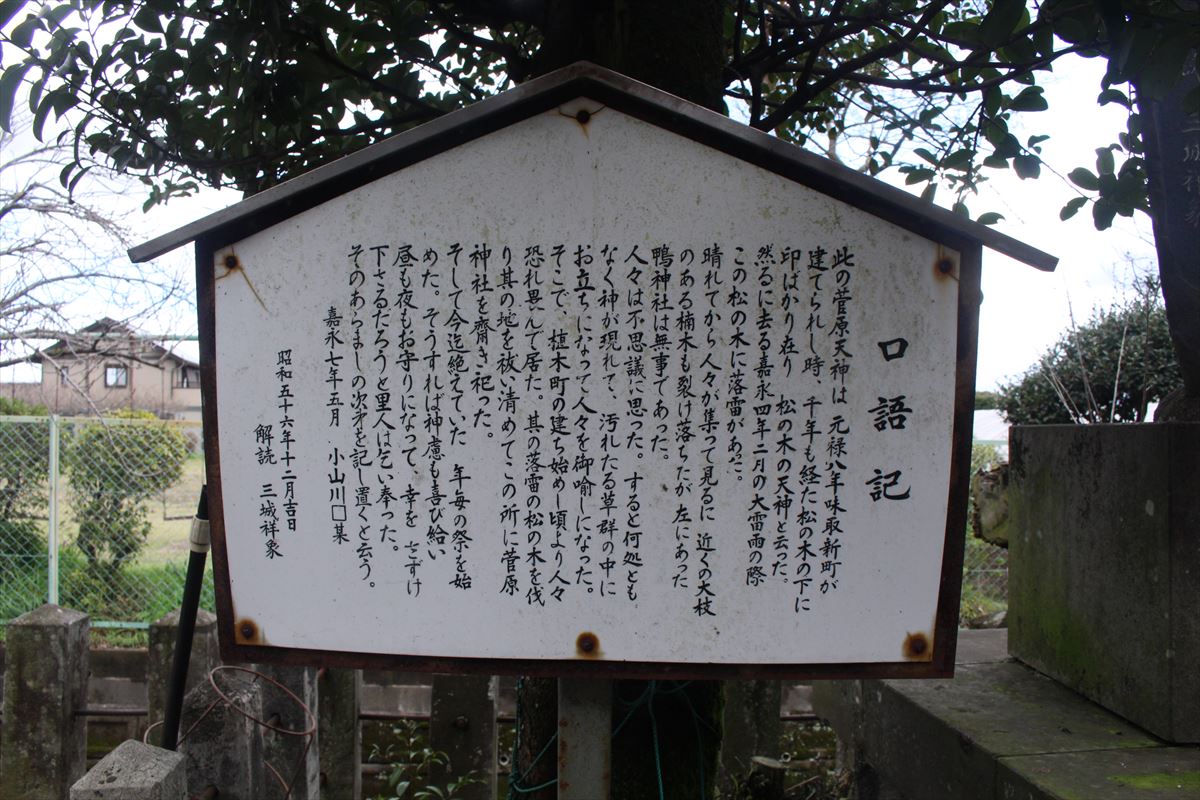 口語記
此の菅原天神は 元禄八年味取新町が
建てられし時、千年も経た松の木の下に
印ばかり在り 松の木の天神と云った。
然るに去る嘉永四年二月の大雷雨の際
この松の木に落雷があった。
晴れてから人々が集って見るに 近くの大枝
のある楠木も裂け落ちたが 左にあった
鴨神社は無事であった。
人々は不思議に思った。すると何処とも
なく神が現れて、汚れたる草群の中に
お立ちになって人々を御喻しになった。
そこで、植木町の建ち始めし頃より人々
恐れ畏んで居た。其の落雷の松の木を伐
り其の地を祓い清めてこの所に菅原
神社を齋き祀った。
そして今迄絶えていた 年毎の祭を始
めた。そうすれば神慮も喜び給い
昼も夜もお守りになって、幸を さずけ
下さるだろうと里人は乞い奉った。
そのあらましの次才を記し置くと云う。
嘉永七年五月 小山川□某
昭和五十六年十二月吉日
解読 三城祥象